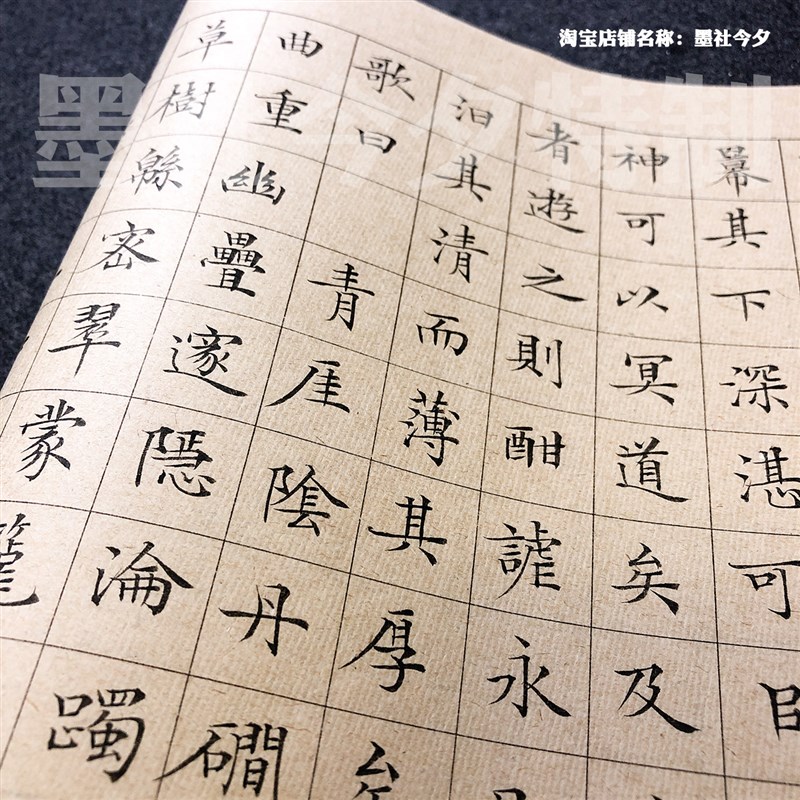 淘宝店铺名称：墨社今夕
墨社今夕特制
其下深湛可
神可以冥道矣及
者遊之則酣謔永
汩其清而薄其厚矣
歌曰
青厓陰丹磵
曲重幽疊邃隱淪躅
草樹緜密翠蒙籠